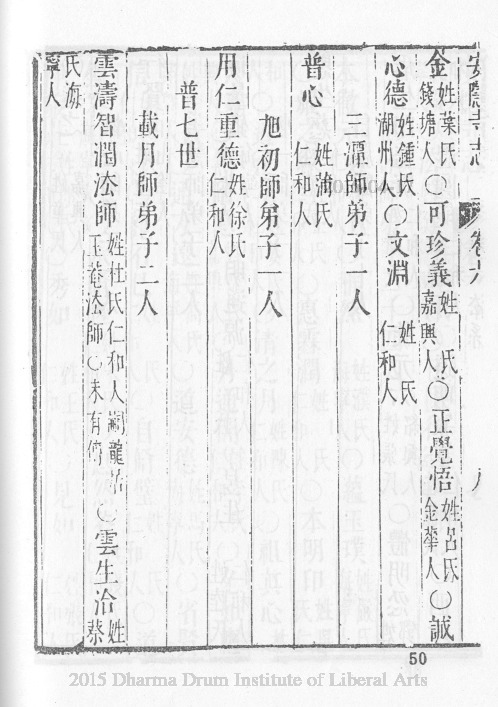 安隱寺志 卷六 八
金姓葉氏錢塘人○可珍義姓 氏嘉興人○正覺悟姓呂氏金華人○誠
心德姓鍾氏湖州人○文淵姓 氏仁和人
三潭師弟子一人
普心姓蒲氏仁和人
旭初師弟子一人
用仁重德姓徐氏仁和人
普七世
載月師弟子二人
雲濤智潤法師姓杜氏仁和人嗣龍玉菴法師○未有傳○雲生洽姓蔡
氏海寧人
50
2015 Dharma Drum Institute of Liberal Arts